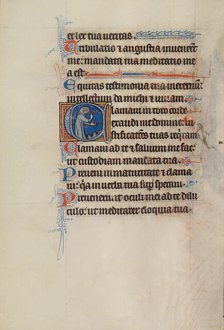 et lex tua veritas
Tribulatio & angustia invenerunt
me: mandata tua meditatio me
a est.
Equitas testimonia tua in eternum:
intellectum da michi & vivam.
Clamavi in toto corde
exaudi me domine: iu
stificationes tuas requiram
Clamavi ad te salvum me fac:
ut custodiam mandata tua.
Preveni in maturitate & clama
vi: quia in verba tua super speravi.
Prevenerunt oculi mei ad te dilu
culo: ut meditarer eloquia tua.